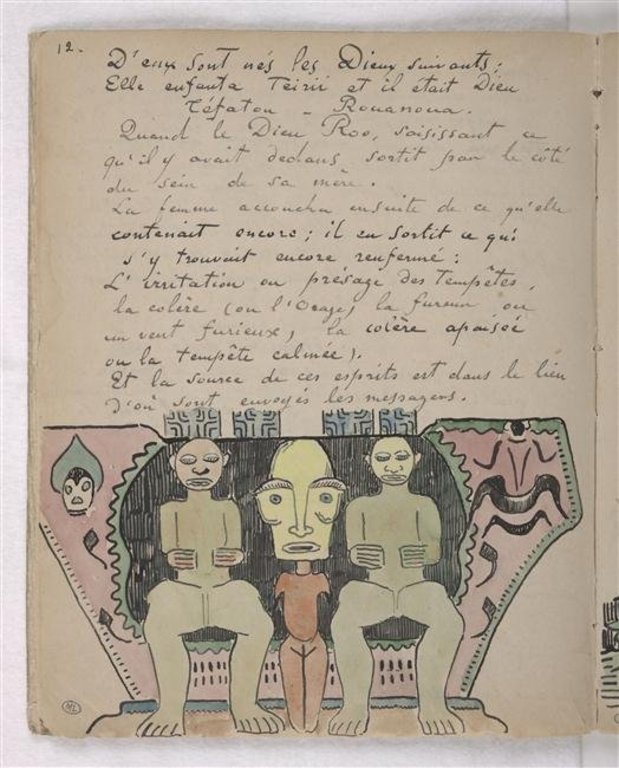 12.
D'eux sont nés les Dieux suivants:
Elle enfanta Teirii et il était Dieu
Téfatou - Rouanoua.
Quand le Dieu Roo, saisissant ce
qu'il y avait dedans sortit par le côté
du sein de sa mère.
La femme accoucha ensuite de ce qu'elle
contenait encore; il en sortit ce qui
s'y trouvait encore renfermé:
L'irritation ou présage des tempêtes,
la colère (ou l'Orage), la fureur ou
un vent furieux, la colère apaisée
ou la tempête calmée).
Et la source de ces esprits est dans le lieu
d'où sont envoyés les messagers.